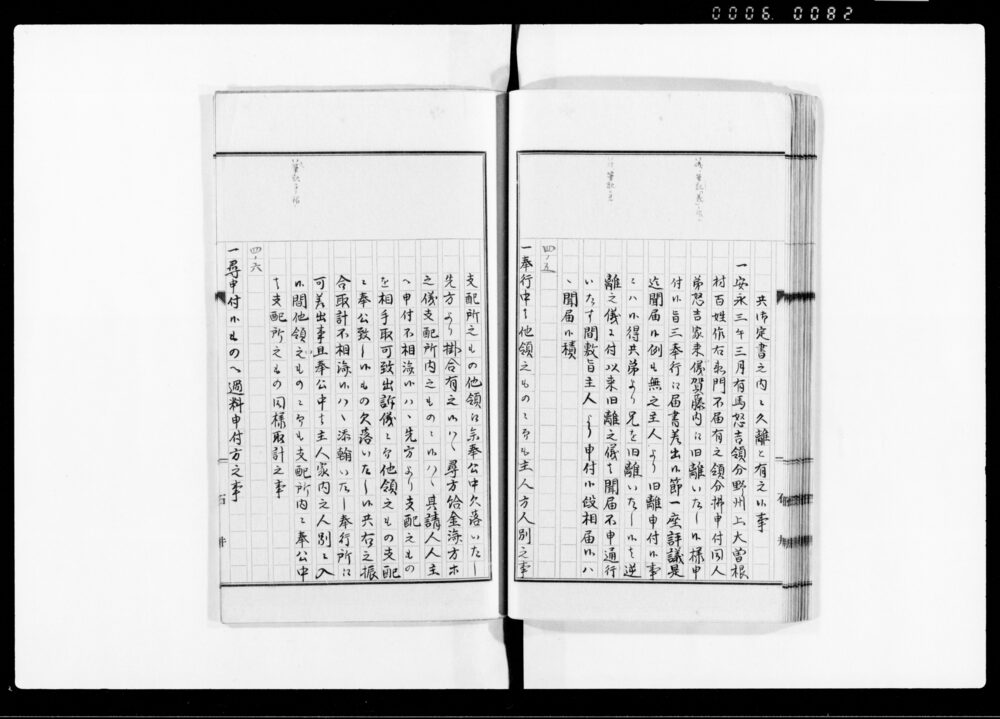 0006. 0082
共御定書之内ニ久離と有之候事
一安永三午三月有馬怒吉領分野州上大曽根
村百姓作右衛門不届有之領分払申付同人
弟怒吉家来儀賀藤内江旧離いたし候様申
付候旨三奉行江届書差出候節一座評議是
迄聞届候例も無之主人より旧離申付候事
ニハ候得共弟より兄を旧離いたし候者逆
離之儀ニ付以来旧離之儀者聞届不申通行
いたす間敷旨主人より申付候段相届候ハ
ヽ聞届候積
四ノ五
一奉行中者他領之ものニても主人方人別之事
支配所之もの他領江奉公中欠落いたし
先方より掛合有之候ハヽ尋方給金済方ホ
之儀支配所内之ものニ候ハヽ其請人人主
へ申付不相済候ハヽ先方より支配之もの
を相手取可致出訴儀ニて他領之もの支配
ニ奉公致し候もの欠落いたし候共右之振
合取計不相済候ハヽ添翰いたし奉行所江
可差出事且奉公中者主人家内之人別ニ入
候間他領之ものニても支配所内ニ奉公中
者支配所之もの同様取計之事
四ノ六
一尋申付候ものへ過料申付方之事